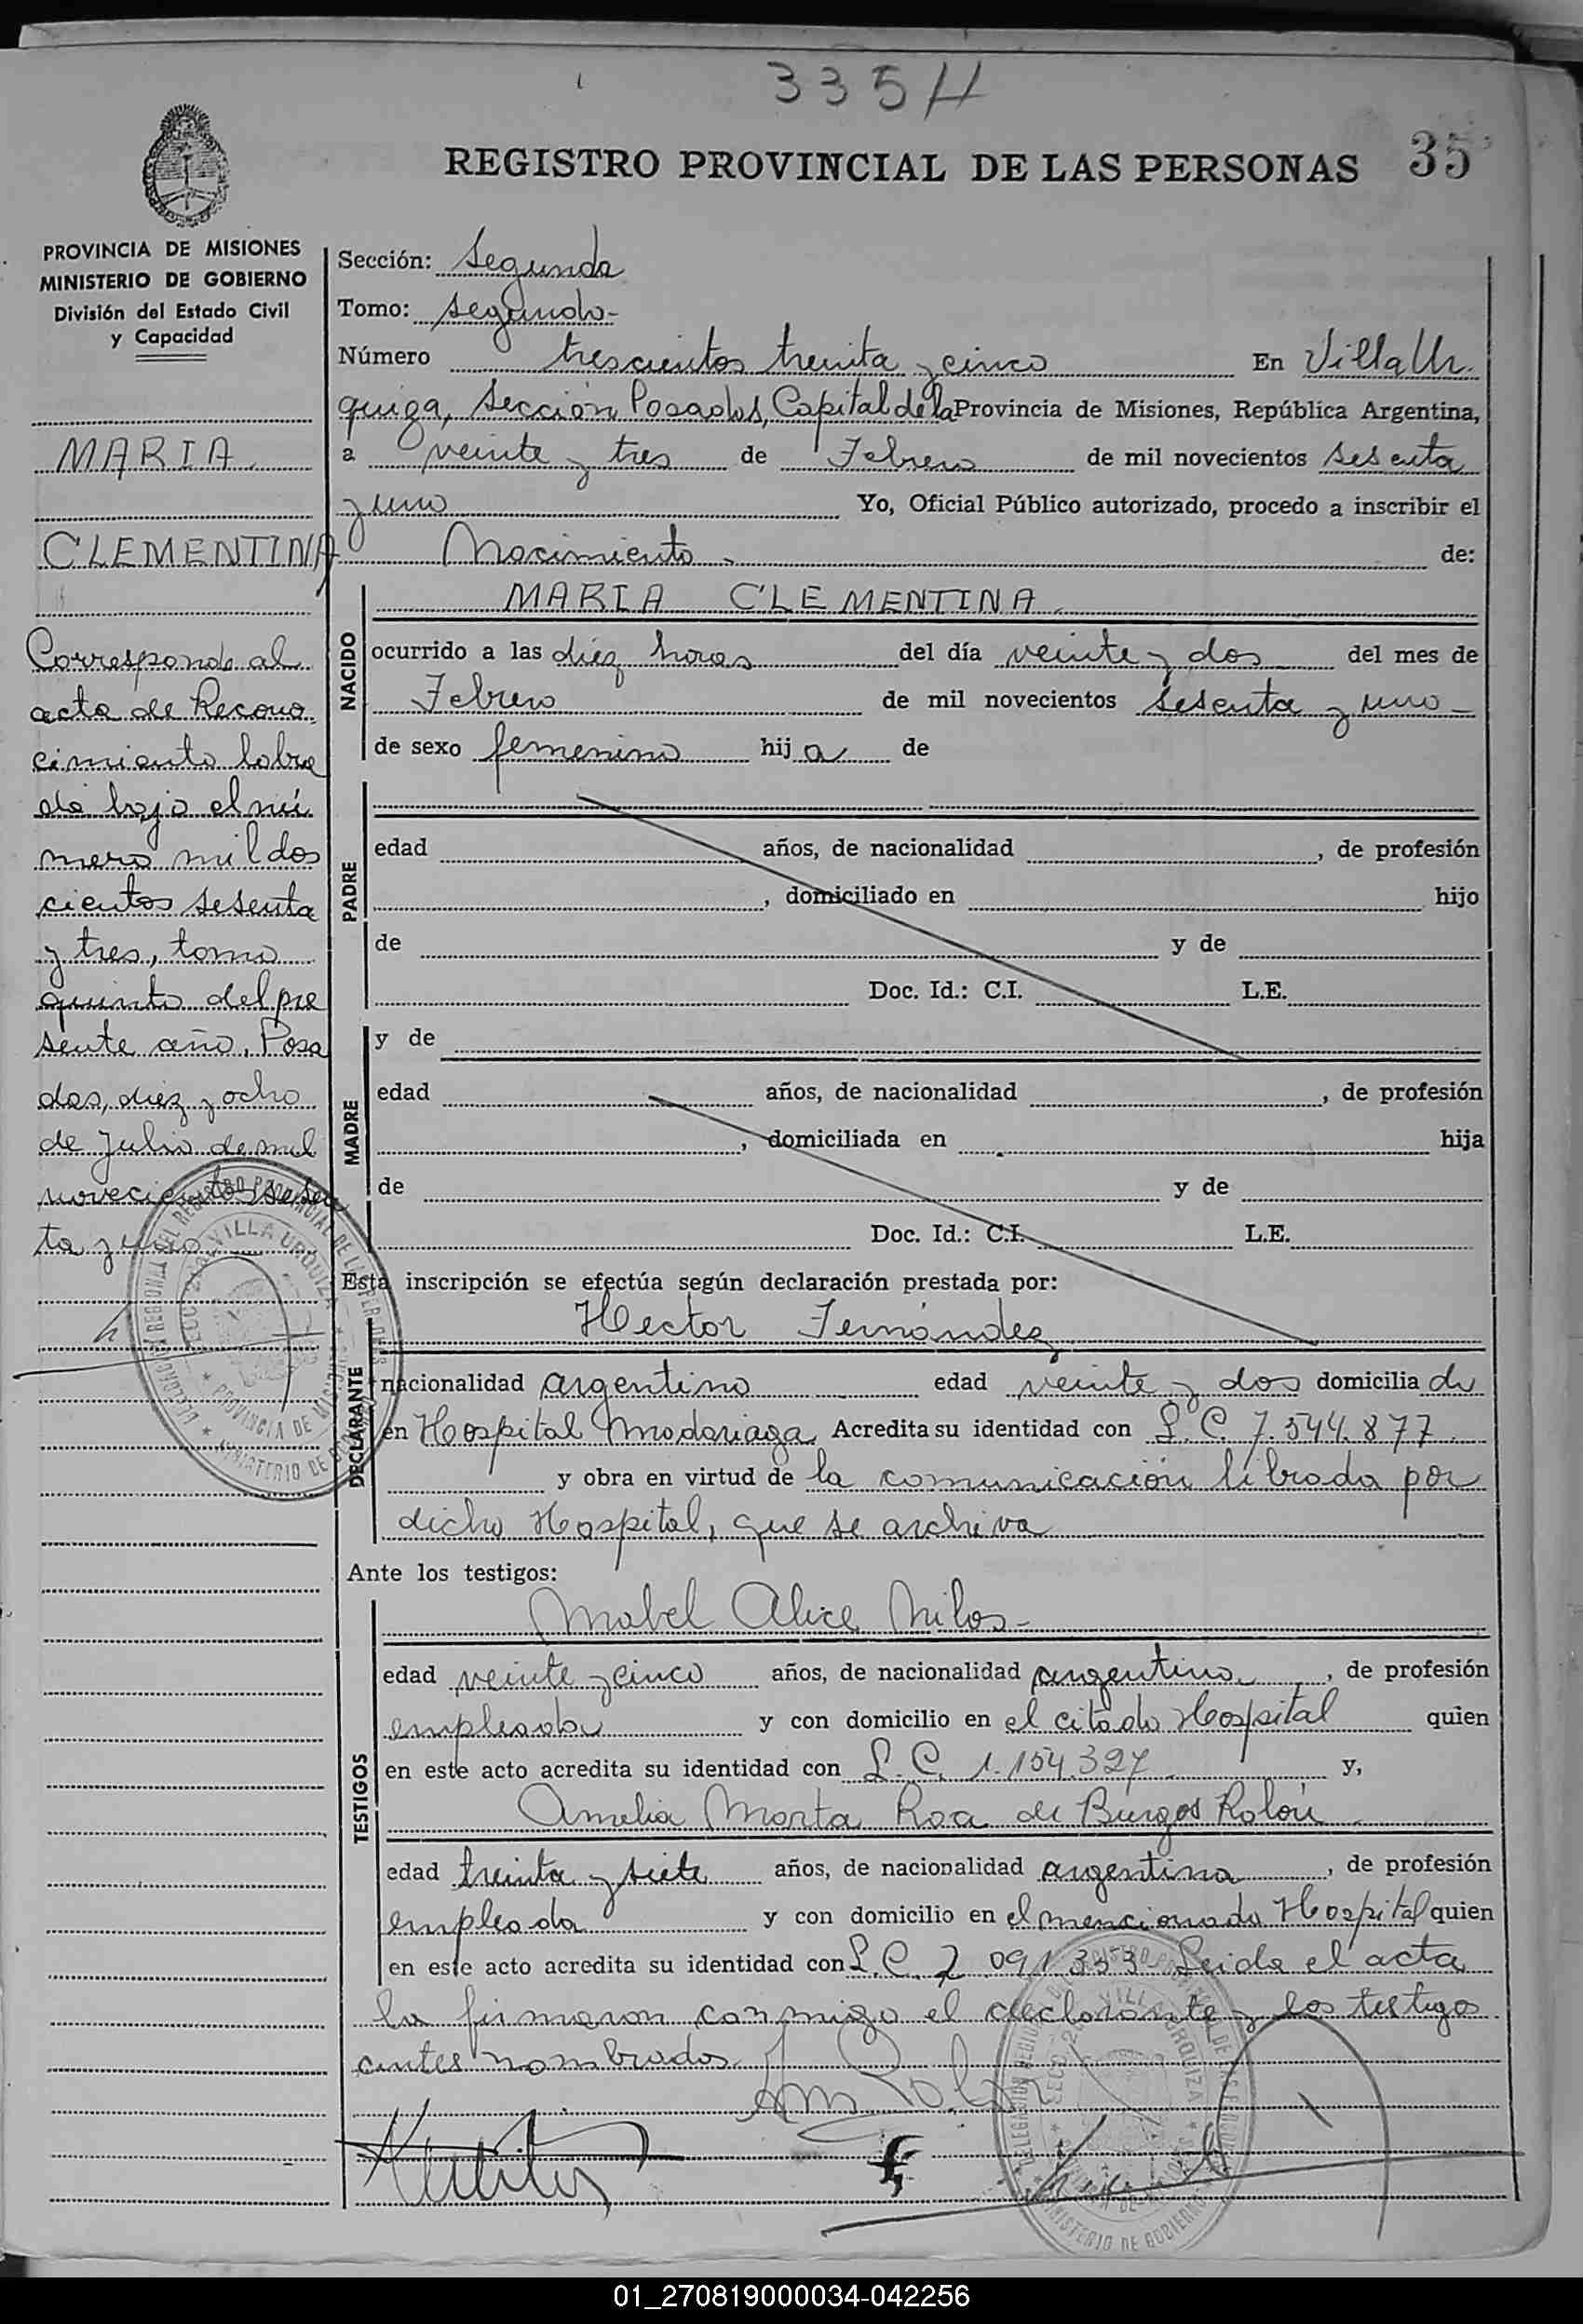 335H
REGISTRO PROVINCIAL DE LAS PERSONAS 35
PROVINCIA DE MISIONES
MINISTERIO DE GOBIERNO
División del Estado Civil
y Capacidad
MARIA
CLEMENTINA
Corresponde al
acta de Recono
cimiento labra
da bajo el nú
mero mil dos
cientos sesenta
y tres, tomo
quinto del pre
sente año. Posa
das, diez y ocho
de Julio de mil
novecientos sesen
ta y uno
Sección: Segunda
Tomo: segundo-
Número trescientos treinta y cinco En Villa Ur
quiza, Sección Posadas, Capital de la Provincia de Misiones, República Argentina,
a veinte y tres de Febrero de mil novecientos sesenta
y uno Yo, Oficial Público autorizado, procedo a inscribir el
Nacimiento de:
NACIDO
MARIA CLEMENTINA
ocurrido a las diez horas del día veinte y dos del mes de
Febrero de mil novecientos sesenta y uno-
de sexo femenino hij a de
PADRE
edad años, de nacionalidad , de profesión
, domiciliado en hijo
de y de
Doc. Id.: C.I. L.E.
MADRE
y de
edad años, de nacionalidad , de profesión
, domiciliada en hija
de y de
Doc. Id.: C.I. L.E.
Esta inscripción se efectúa según declaración prestada por:
DECLARANTE
Hector Fernández
nacionalidad argentino edad veinte y dos domicilia do
en Hospital Madariaga Acredita su identidad con L.C. 7.544.877
y obra en virtud de la comunicación librada por
dicho Hospital, que se archiva
Ante los testigos:
TESTIGOS
Mabel Alice Milos-
edad veinte y cinco años, de nacionalidad argentina , de profesión
empleada y con domicilio en el citado Hospital quien
en este acto acredita su identidad con L.C. 1.154.327 y,
Amelia Marta Roa de Burgos Rolón
edad treinta y siete años, de nacionalidad argentina , de profesión
empleada y con domicilio en el mencionado Hospital quien
en este acto acredita su identidad con L.C. 2 091.353 Leida el acta
la firmaron conmigo el declarante y los testigos
antes nombrados
01_270819000034-042256